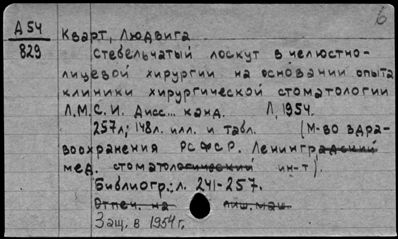 6
А 54
829
Кварт, Людвига
Стебельчатый лоскут в челюстно-
лицевой хирургии на основании опыта
клиники хирургической стоматологии
Л.М.С.И. Дисс... канд. Л, 1954.
257л; 148л. илл. и табл. (М-во здра-
воохранения РСФСР. Ленинградский
мед. стоматологический ин-т).
Библиогр.: л. 241-257.
Отпеч. на пиш. маш.
Защ. в 1954 г.